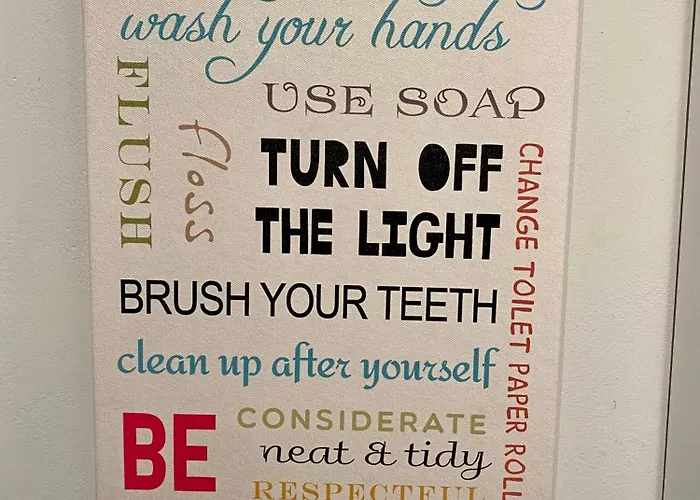 wash your hands
FLUSH
USE SOAP
floss
TURN OFF
THE LIGHT
CHANGE TOILET PAPER ROLL
BRUSH YOUR TEETH
clean up after yourself
BE
CONSIDERATE
neat & tidy
RESPECTFUL